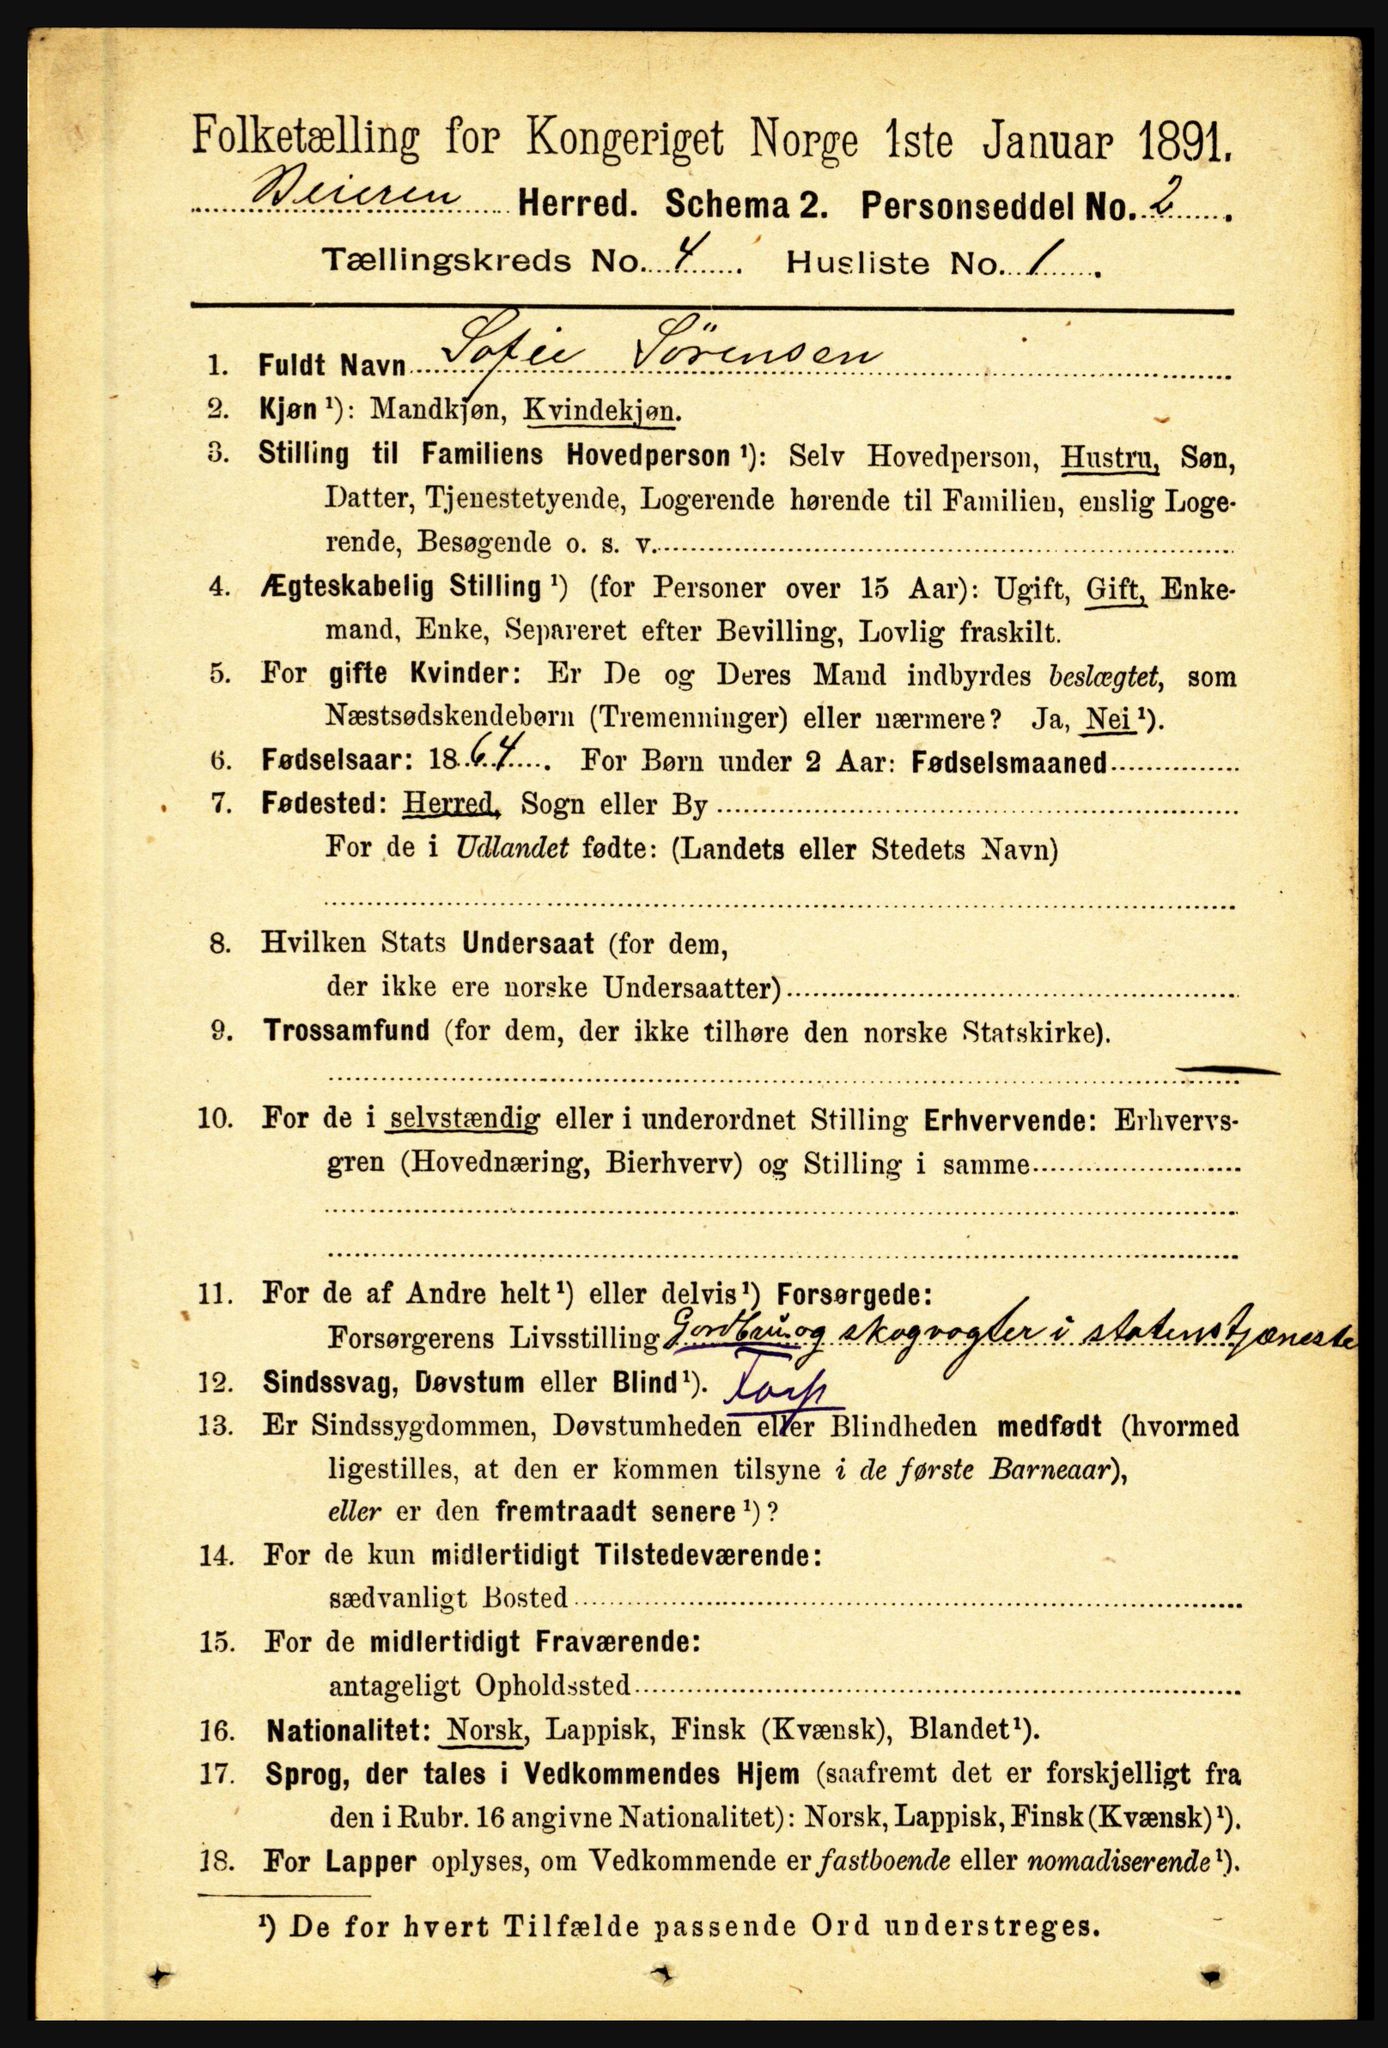 Folketælling for Kongeriget Norge 1ste Januar 1891.
Beieren Herred. Schema 2. Personseddel No. 2.
Tællingskreds No. 4. Husliste No. 1.
1. Fuldt Navn Sofie Sörensen
2. Kjøn ¹): Mandkjøn, Kvindekjøn.
3. Stilling til Familiens Hovedperson ¹): Selv Hovedperson, Hustru, Søn,
Datter, Tjenestetyende, Logerende hørende til Familien, enslig Loge-
rende, Besøgende o. s. v.
4. Ægteskabelig Stilling ¹) (for Personer over 15 Aar): Ugift, Gift, Enke-
mand, Enke, Separeret efter Bevilling, Lovlig fraskilt.
5. For gifte Kvinder: Er De og Deres Mand indbyrdes beslægtet, som
Næstsødskendebørn (Tremenninger) eller nærmere? Ja, Nei ¹).
6. Fødselsaar: 1864. For Børn under 2 Aar: Fødselsmaaned
7. Fødested: Herred, Sogn eller By
For de i Udlandet fødte: (Landets eller Stedets Navn)
8. Hvilken Stats Undersaat (for dem,
der ikke ere norske Undersaatter)
9. Trossamfund (for dem, der ikke tilhøre den norske Statskirke).
10. For de i selvstændig eller i underordnet Stilling Erhvervende: Erhvervs-
gren (Hovednæring, Bierhverv) og Stilling i samme
11. For de af Andre helt ¹) eller delvis ¹) Forsørgede:
Forsørgerens Livsstilling Gordbru og skogvogter i statenstjæneste
12. Sindssvag, Døvstum eller Blind ¹).
13. Er Sindssygdommen, Døvstumheden eller Blindheden medfødt (hvormed
ligestilles, at den er kommen tilsyne i de første Barneaar),
eller er den fremtraadt senere ¹)?
14. For de kun midlertidigt Tilstedeværende:
sædvanligt Bosted
15. For de midlertidigt Fraværende:
antageligt Opholdssted
16. Nationalitet: Norsk, Lappisk, Finsk (Kvænsk), Blandet ¹).
17. Sprog, der tales i Vedkommendes Hjem (saafremt det er forskjelligt fra
den i Rubr. 16 angivne Nationalitet): Norsk, Lappisk, Finsk (Kvænsk) ¹).
18. For Lapper oplyses, om Vedkommende er fastboende eller nomadiserende ¹).
¹) De for hvert Tilfælde passende Ord understreges.